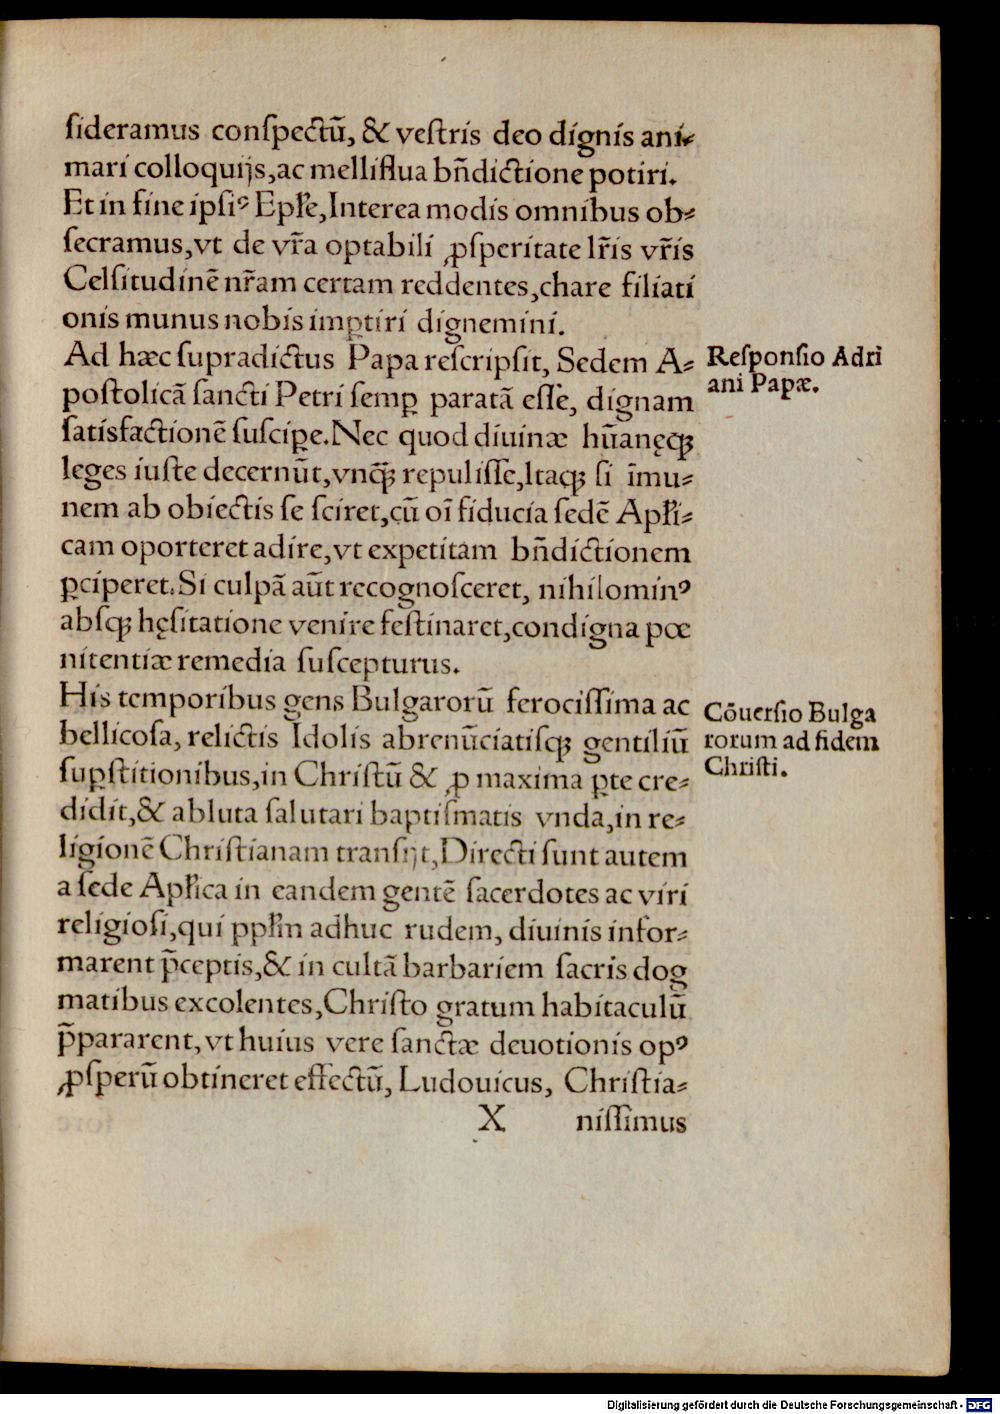 ſideramus conſpectū, & veſtris deo dignis ani-
mari colloquijs,ac melliflua bñdictione potiri.
Et in fine ipſiꝰ Epl̃e,Interea modis omnibus ob-
ſecramus,vt de vr̃a optabili ꝓſperitate lr̃is vr̃is
Celſitudinē nr̃am certam reddentes,chare filiati
onis munus nobis imꝑtiri dignemini.
Ad hæc ſupradictus Papa reſcripſit, Sedem A-
poſtolicā ſancti Petri ſemꝑ paratā eſſe, dignam
ſatisfactionē ſuſciꝑe.Nec quod diuinæ hūanęqꝫ
leges iuſte decernūt,vnq̄ꝫ repuliſſe,Itaqꝫ ſi īmu-
nem ab obiectis ſe ſciret,cū oī fiducia ſedē Apl̃i-
cam oporteret adire,vt expetitam bñdictionem
ꝑciperet.Si culpā aūt recognoſceret, nihilominꝰ
abſqꝫ hęſitatione venire feſtinaret,condigna pœ
nitentiæ remedia ſuſcepturus.
His temporibus gens Bulgarorū ferociſſima ac
bellicoſa, relictis Idolis abrenūciatiſqꝫ gentiliū
ſuꝑſtitionibus,in Chriſtū & ꝓ maxima ꝑte cre-
didit,& abluta ſalutari baptiſmatis vnda,in re-
ligionē Chriſtianam tranſijt,Directi ſunt autem
a ſede Apl̃ica in eandem gentē ſacerdotes ac viri
religioſi,qui ppl̃m adhuc rudem, diuinis infor-
marent p̄ceptis,& in cultā barbariem ſacris dog
matibus excolentes,Chriſto gratum habitaculū
p̄pararent,vt huius vere ſanctæ deuotionis opꝰ
ꝓſperū obtineret effectū, Ludouicus, Chriſtia-
X niſſimus
Reſponſio Adri
ani Papæ.
Cōuerſio Bulga
rorum ad fidem
Chriſti.
Digitalisierung gefördert durch die Deutsche Forschungsgemeinschaft - DFG